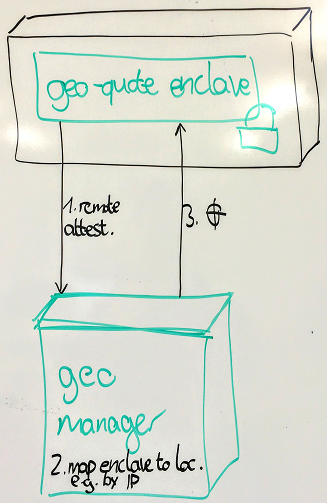 geo-quote enclave
1. remote
attest.
3.
geo
manager
2. map enclave to loc.
e.g. by IP